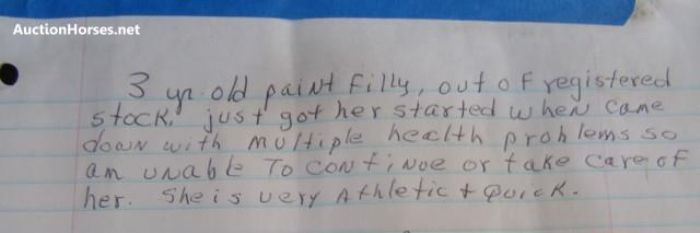 AuctionHorses.net
3 yr. old paint filly, out of registered
stock. just got her started when came
down with multiple heclth problems so
am unable To continue or take care of
her. She is very Athletic + Quick.